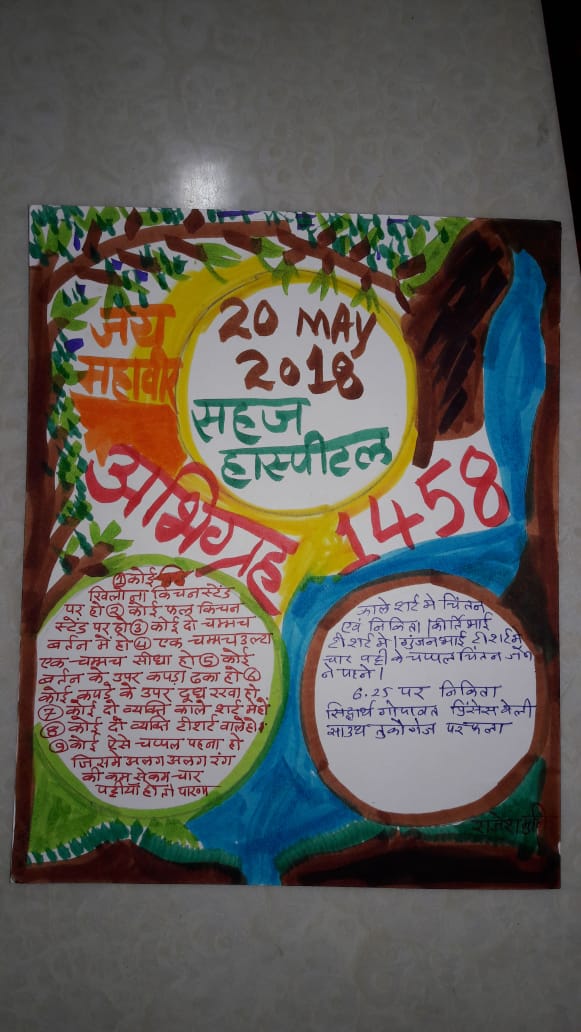 जय
महावीर
20 MAY
2018
सहज
हास्पीटल
अभिग्रह 1458
① कोई
खिलौना किचन स्टेंड
पर हो ② कोई फल किचन
स्टेंड पर हो ③ कोई दो चम्मच
बर्तन में हो ④ एक चम्मच उल्टा
एक चम्मच सीधा हो ⑤ कोई
बर्तन के उपर कपड़ा ढका हो ⑥
कोई कपड़े के उपर दूध रखा हो
⑦ कोई दो व्यक्ति काले शर्ट में हो
⑧ कोई दो व्यक्ति टीशर्ट वाले हो
⑨ कोई ऐसे चप्पल पहना हो
जिसमे अलग अलग रंग
की कम से कम चार
पट्टीया हो तो पारणा
काले शर्ट मे चिंतन
एवं निकिता। कीर्तिभाई
टी शर्ट मे। गुंजनभाई टी शर्ट मे
चार पट्टी के चप्पल चिंतन
ने पहने।
6.25 पर निकिता
सिद्धार्थ गोपावत प्रिंसेस वेली
साउथ तुकोगंज पर
राजेश मुनि